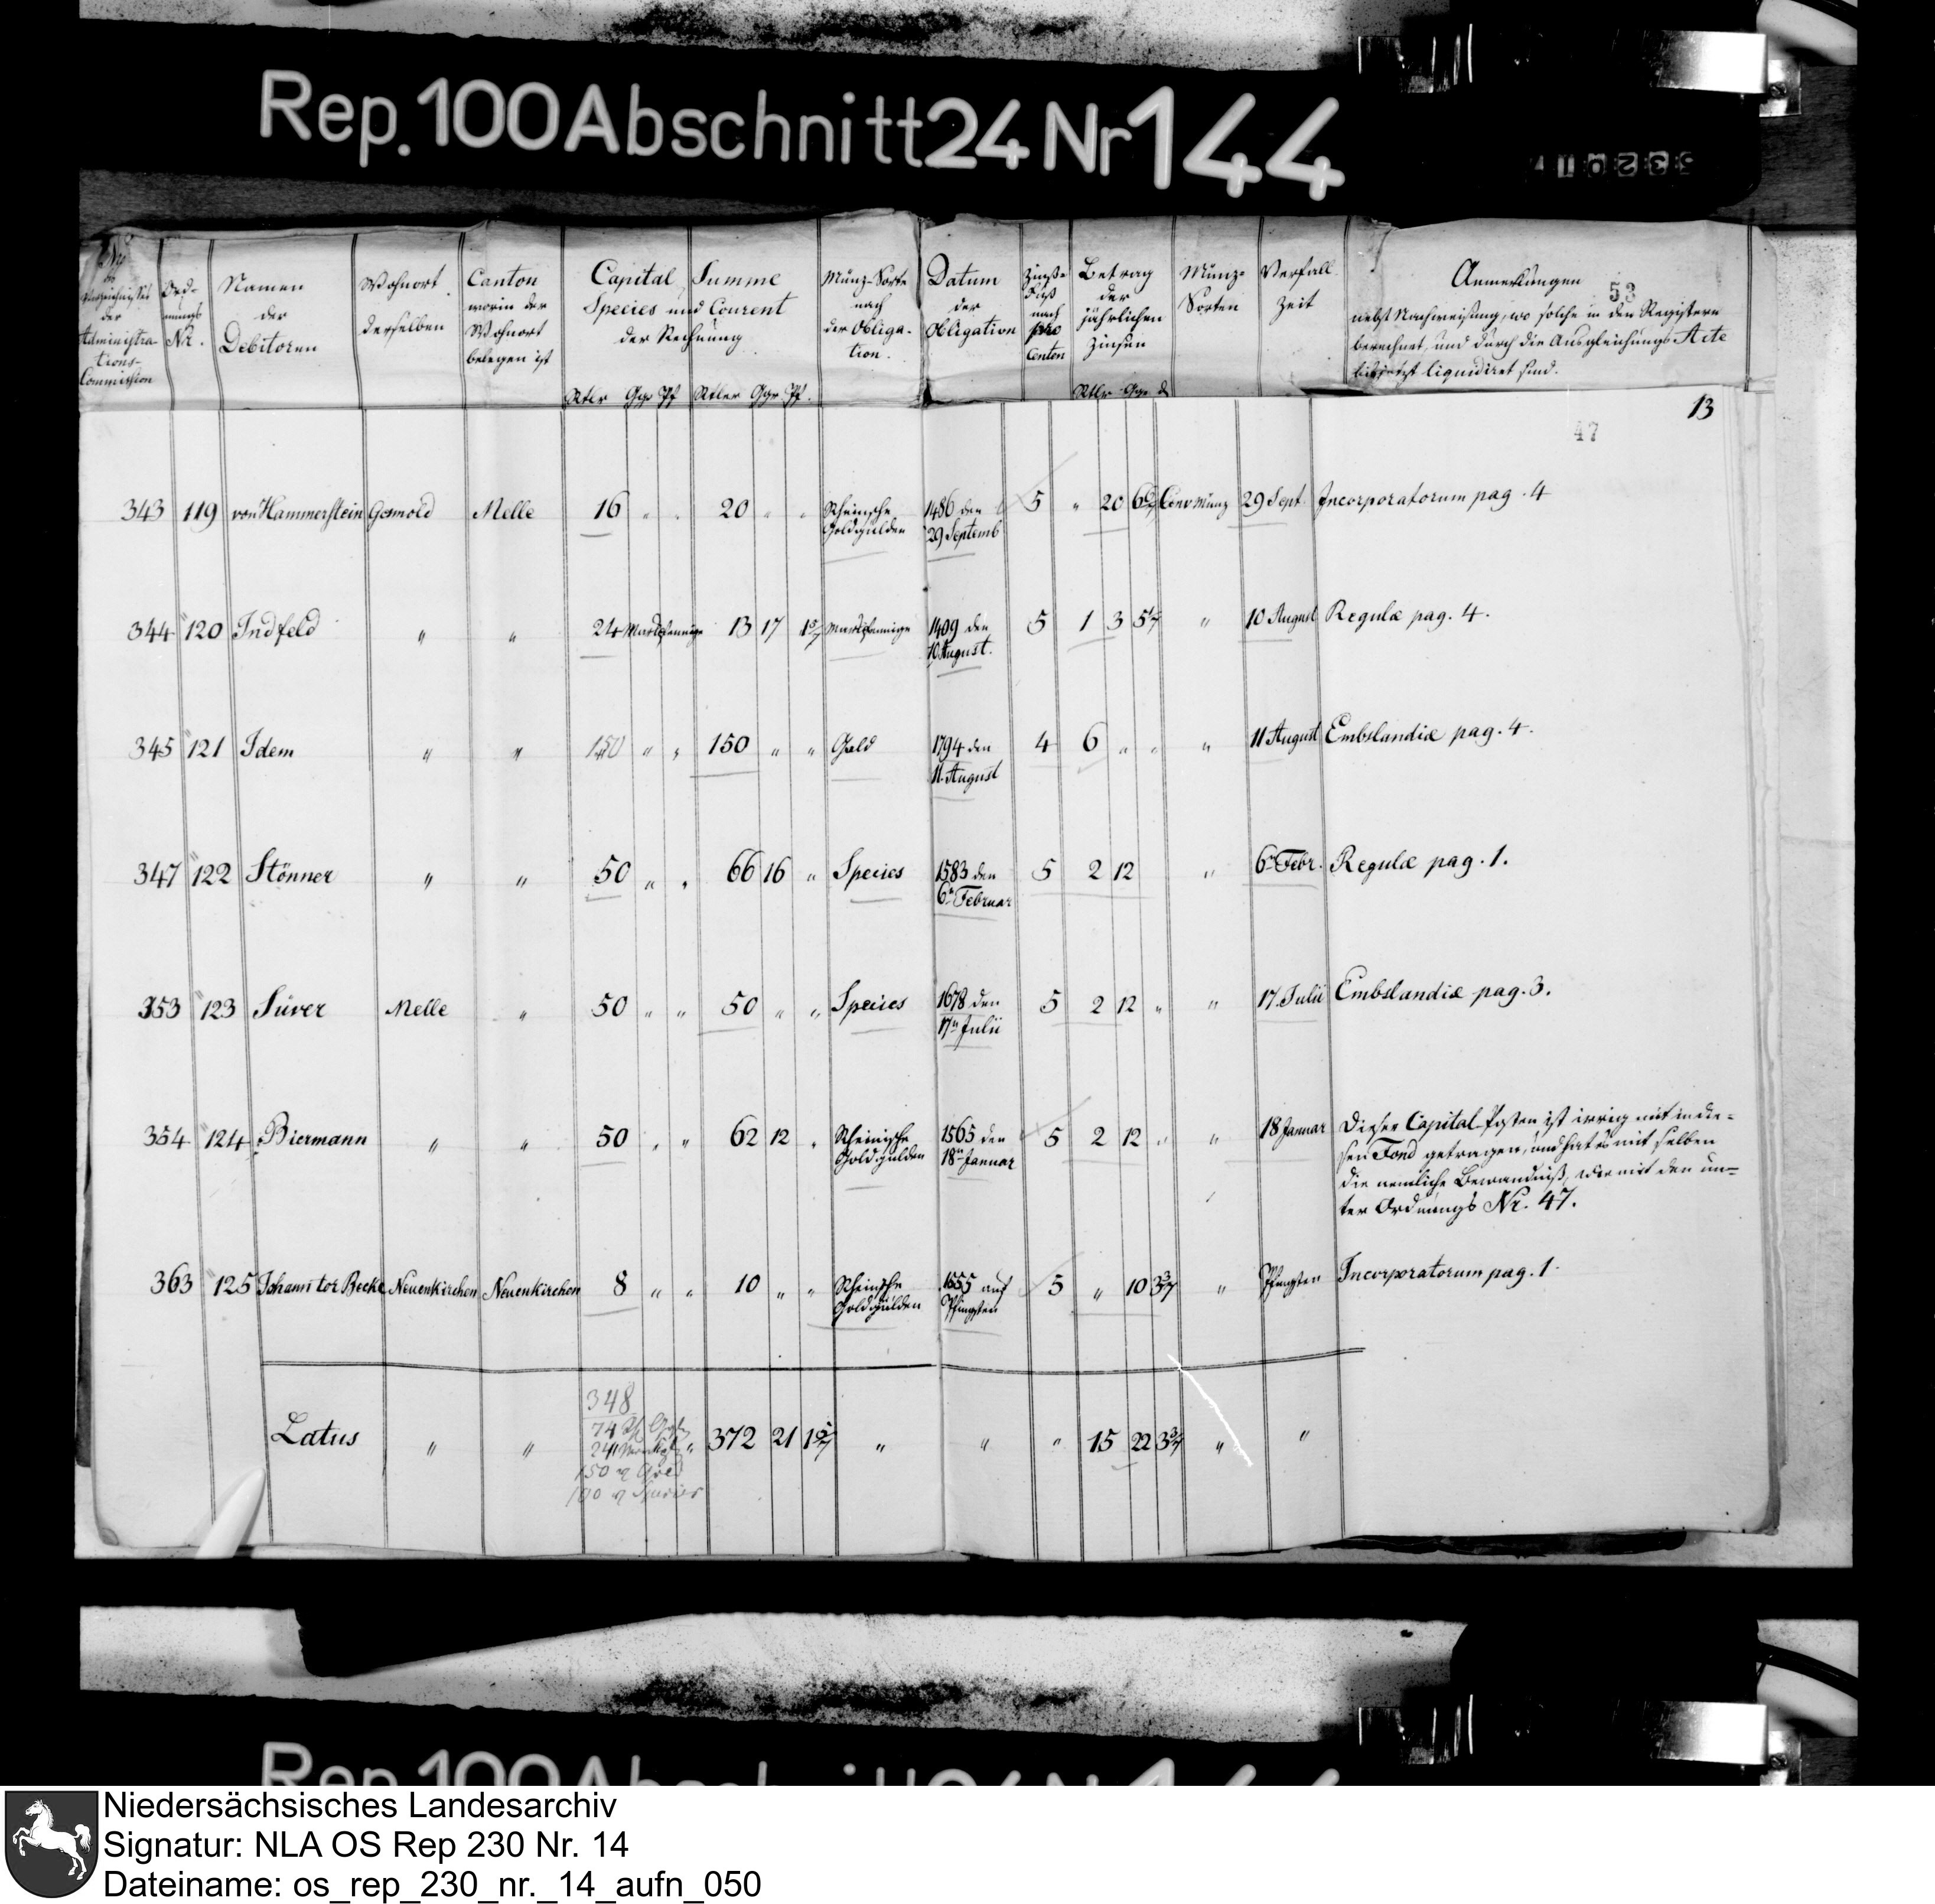 Rep. 100 Abschnitt 24 Nr 144
53
No
der
Administra-
tions-
Commission
Ord-
nungs
Nr.
Namen
der
Debitoren
Wohnort
derselben
Canton
worin der
Wohnort
belegen ist
Capital Summe
Species und Courent
der Rechnung
Rtlr Ggr Pf Rtler Ggr Pf.
Münz-Sorte
nach
der Obliga-
tion.
Datum
der
Obligation
Zinß-
Fuß
nach
pro
Centen
Betrag
der
jährlichen
Zinsen
Rtlr Ggr
Münz-
Sorten
Verfall
Zeit
Anmerkungen
nebst Nachweisung, wo solche in den Registern
berechnet, und durch die Ausgleichungs Acte
liquidiret sind.
13
47
343 119 von Hammerstein Gesmold Melle 16 " " 20 " " Rheinsche Goldgulden 1486 den 29 Septemb 5 " 20 6 6/7 Conv Münz 29 Sept. Incorporatorum pag. 4
344 120 Indfeld " " 24 Markpfennige 13 17 1 5/7 Markpfennige 1409 den 10 August. 5 1 3 5 1/7 " 10 August Regulæ pag. 4.
345 121 Idem " " 150 " " 150 " " Gold 1794 den 11. August 4 6 " " " 11 August Embslandiæ pag. 4.
347 122 Stönner " " 50 " " 66 16 " Species 1583 den 6n Februar 5 2 12 " 6n Febr. Regulæ pag. 1.
353 123 Süver Melle " 50 " " 50 " " Species 1678 den 17n Julii 5 2 12 " " 17. Julii Embslandiæ pag. 3.
354 124 Biermann " " 50 " " 62 12 " Rheinische Goldgulden 1565 den 18n Januar 5 2 12 " " 18 Januar Dieser Capital-Posten ist irrig mit in die-
sen Fond getragen, und hat es mit selben
die nemliche Bewandniß, wie mit den un-
ter Ordnungs Nr. 47.
363 125 Johann tor Becke Neuenkirchen Neuenkirchen 8 " " 10 " " Rheinsche Goldgulden 1555 auf Pfingsten 5 " 10 3 3/7 " Pfingsten Incorporatorum pag. 1.
Latus " " 348 " 372 21 1 5/7 " " " 15 22 3 3/7 " "
74
24
150 Gold
100 Species
Rep. 100 Abschnitt 24 Nr 144
Niedersächsisches Landesarchiv
Signatur: NLA OS Rep 230 Nr. 14
Dateiname: os_rep_230_nr._14_aufn_050